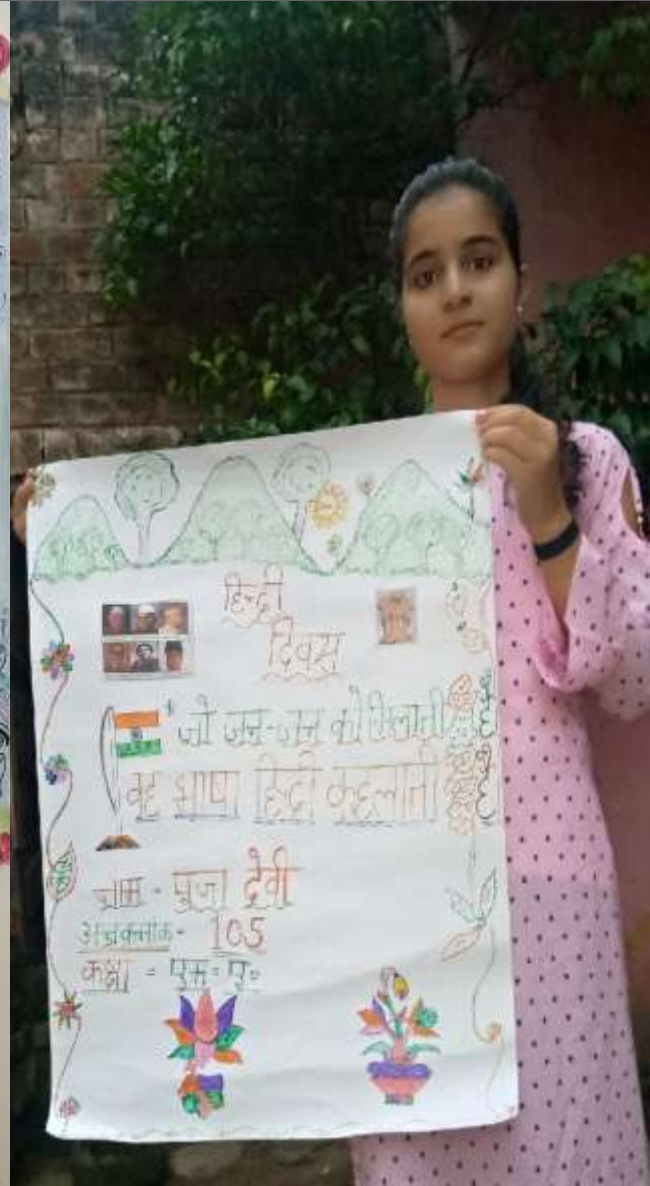 हिन्दी
दिवस
जो जन-जन को मिलाती है
वह भाषा हिन्दी कहलाती है
नाम - पूजा देवी
अनुक्रमांक - 105
कक्षा = एम॰ ए॰